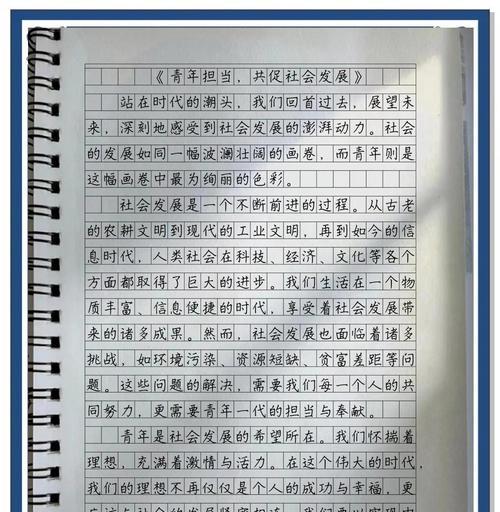 《青年担当，共促社会发展》
站在时代的潮头，我们回首过去，展望未
来，深刻地感受到社会发展的澎湃动力。社会
的发展如同一幅波澜壮阔的画卷，而青年则是
这幅画卷中最为绚丽的色彩。
社会发展是一个不断前进的过程。从古老
的农耕文明到现代的工业文明，再到如今的信
息时代，人类社会在科技、经济、文化等各个
方面都取得了巨大的进步。我们生活在一个物
质丰富、信息便捷的时代，享受着社会发展带
来的诸多成果。然而，社会发展也面临着诸多
挑战，如环境污染、资源短缺、贫富差距等问
题。这些问题的解决，需要我们每一个人的共
同努力，更需要青年一代的担当与奉献。
青年是社会发展的希望所在。我们怀揣着
理想，充满着激情与活力。在这个伟大的时代，
我们的理想不再仅仅是个人的成功与幸福，更